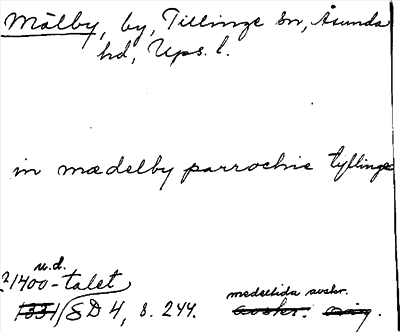 Mälby, by, Tillinge sn, Åsunda
hd, Ups. l.
in mædelby parrochie tyllinge
u.d.
?1400-talet
1331 SD 4, s. 244.
medeltida avskr.
avskr. orig.